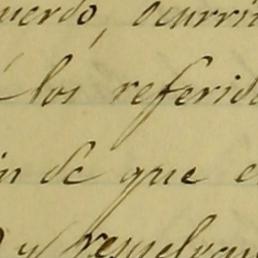 uerdo, ocurri
los referid
in de que e
y resuelvan